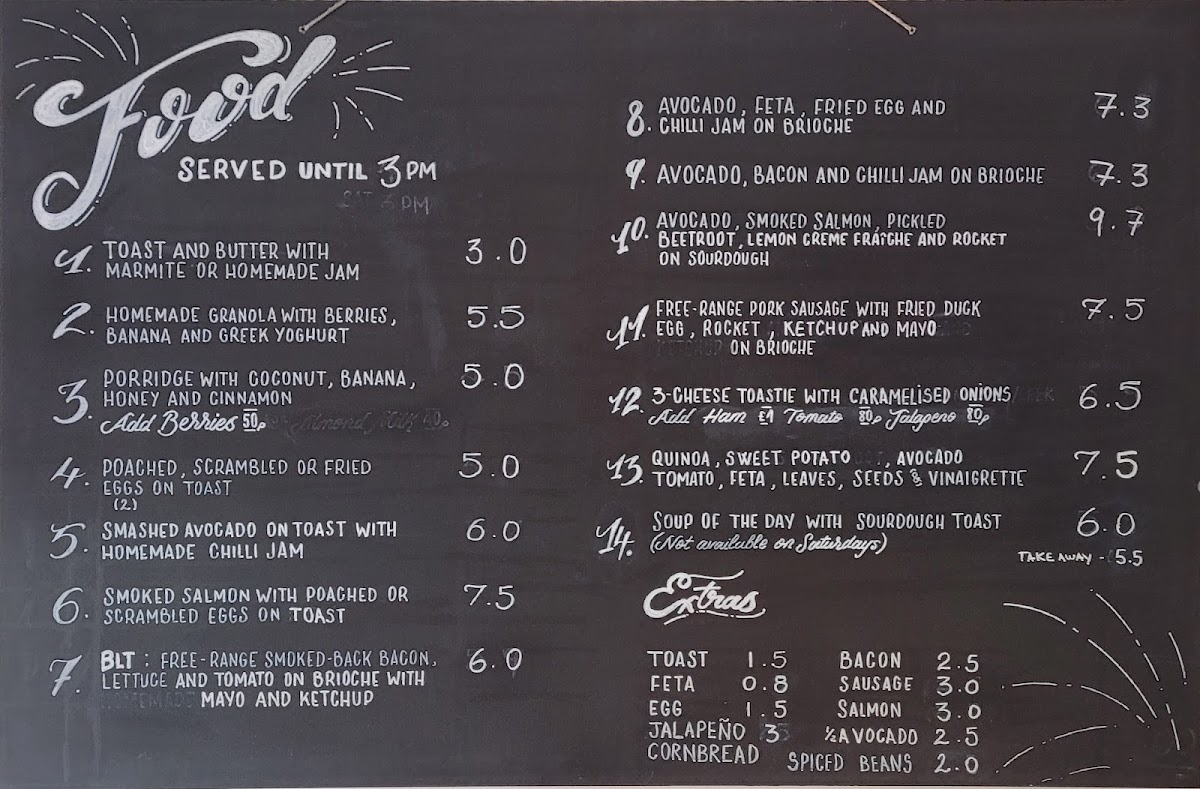 Food
SERVED UNTIL 3PM
SAT 3PM
1. TOAST AND BUTTER WITH 3.0
MARMITE OR HOMEMADE JAM
2. HOMEMADE GRANOLA WITH BERRIES, 5.5
BANANA AND GREEK YOGHURT
3. PORRIDGE WITH COCONUT, BANANA, 5.0
HONEY AND CINNAMON
Add Berries 50p Almond Milk
4. POACHED, SCRAMBLED OR FRIED 5.0
EGGS ON TOAST
(2)
5. SMASHED AVOCADO ON TOAST WITH 6.0
HOMEMADE CHILLI JAM
6. SMOKED SALMON WITH POACHED OR 7.5
SCRAMBLED EGGS ON TOAST
7. BLT : FREE-RANGE SMOKED-BACK BACON, 6.0
LETTUCE AND TOMATO ON BRIOCHE WITH
HOMEMADE MAYO AND KETCHUP
8. AVOCADO, FETA, FRIED EGG AND 7.3
CHILLI JAM ON BRIOCHE
9. AVOCADO, BACON AND CHILLI JAM ON BRIOCHE 7.3
10. AVOCADO, SMOKED SALMON, PICKLED 9.7
BEETROOT, LEMON CREME FRAÎCHE AND ROCKET
ON SOURDOUGH
11. FREE-RANGE PORK SAUSAGE WITH FRIED DUCK 7.5
EGG, ROCKET, KETCHUP AND MAYO
KETCHUP ON BRIOCHE
12. 3-CHEESE TOASTIE WITH CARAMELISED ONIONS 6.5
Add Ham £1 Tomato 80p Jalapeno 80p
13. QUINOA, SWEET POTATO, AVOCADO 7.5
TOMATO, FETA, LEAVES, SEEDS & VINAIGRETTE
14. SOUP OF THE DAY WITH SOURDOUGH TOAST 6.0
(Not available on Saturdays)
TAKE AWAY - 5.5
Extras
TOAST 1.5 BACON 2.5
FETA 0.8 SAUSAGE 3.0
EGG 1.5 SALMON 3.0
JALAPEÑO 3 ½ AVOCADO 2.5
CORNBREAD SPICED BEANS 2.0